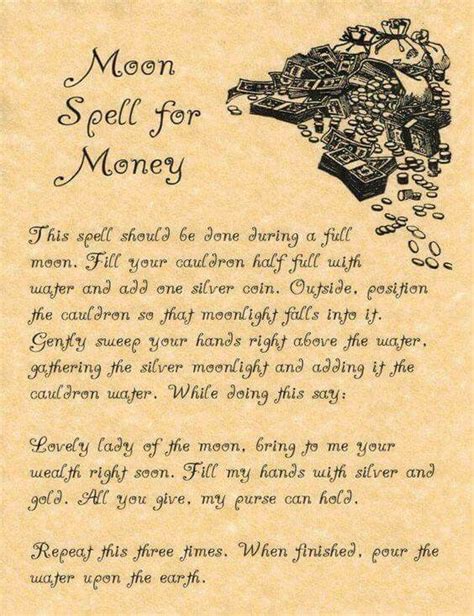 Moon
Spell for
Money
This spell should be done during a full
moon. Fill your cauldron half full with
water and add one silver coin. Outside, position
the cauldron so that moonlight falls into it.
Gently sweep your hands right above the water,
gathering the silver moonlight and adding it the
cauldron water. While doing this say:
Lovely lady of the moon, bring to me your
wealth right soon. Fill my hands with silver and
gold. All you give, my purse can hold.
Repeat this three times. When finished, pour the
water upon the earth.